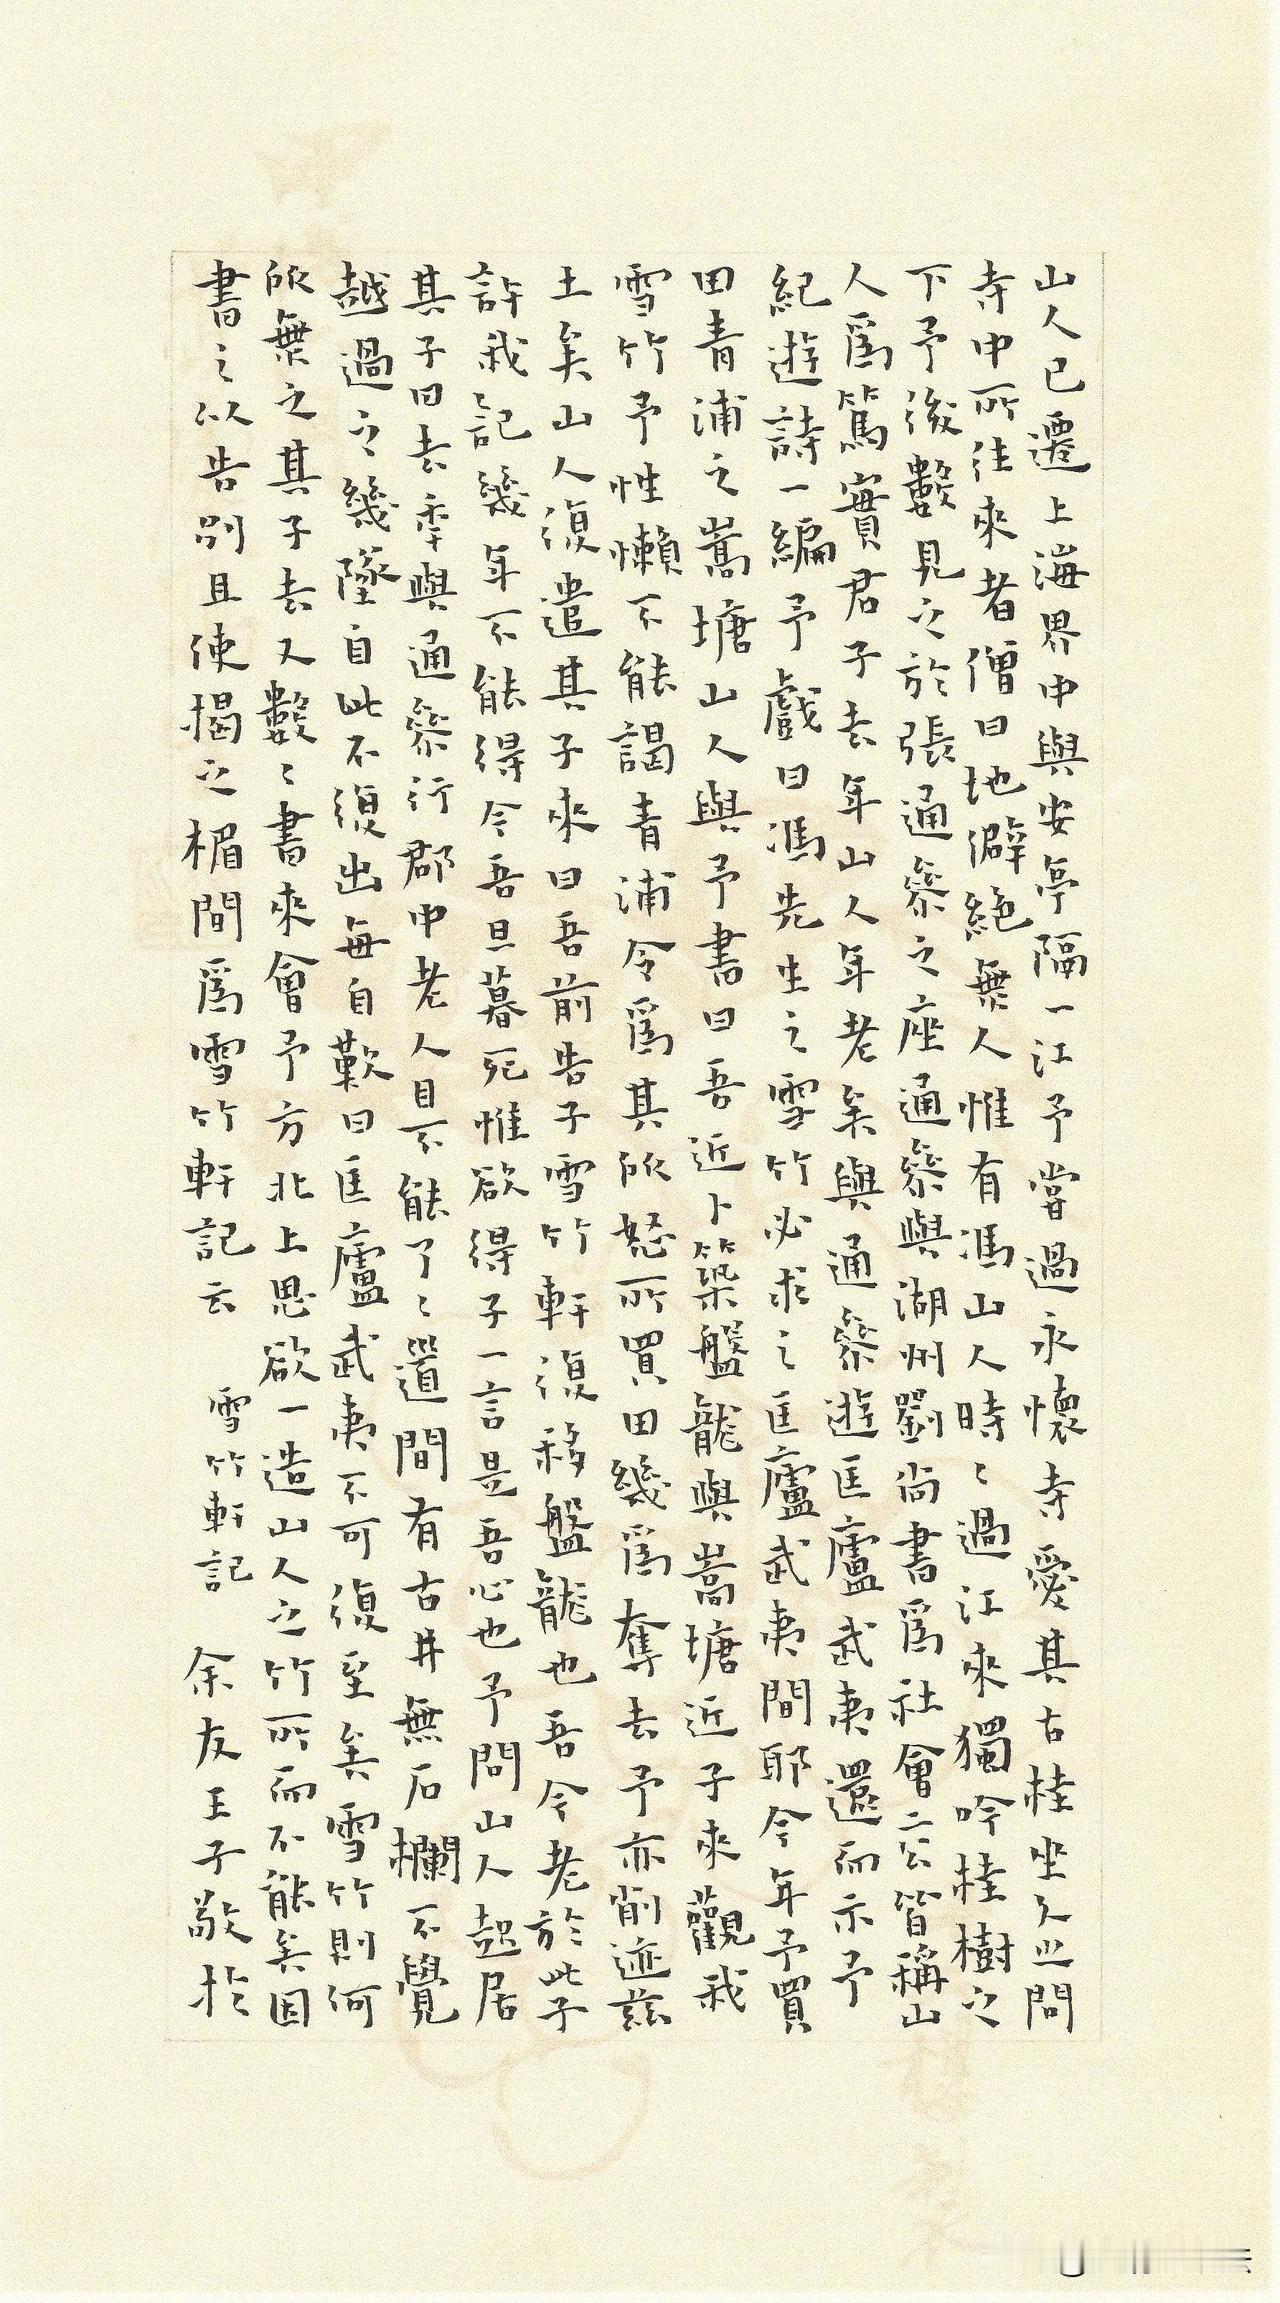 山人已遷上海界中與安亭隔一江予嘗過永懷寺愛其古桂坐久之問
寺中所往來者僧曰地僻絕無人惟有馮山人時〻過江來獨吟桂樹之
下予後數見之於張通參之座通參與湖州劉尚書為社會二公皆稱山
人為篤實君子去年山人年老矣與通參遊匡廬武夷還而示予
紀遊詩一編予戲曰馮先生之雪竹必求之匡廬武夷間耶今年予買
田青浦之嵩塘山人與予書曰吾近卜築盤龍與嵩塘近子來觀我
雪竹予性懶不能謁青浦令為其所怒所買田幾為奪去予亦削迹茲
土矣山人復遣其子來曰吾前告子雪竹軒復移盤龍也吾今老於此子
許我記幾年不能得今吾旦暮死惟欲得子一言是吾心也予問山人起居
其子曰去年與通參行郡中老人目不能了〻道間有古井無石欄不覺
越過之幾墜自此不復出每自歎曰匡廬武夷不可復至矣雪竹則何
所無之其子去又數〻書來會予方北上思欲一造山人之竹所而不能矣因
書之以告別且使揭之楣間為雪竹軒記云 雪竹軒記 余友王子敬於